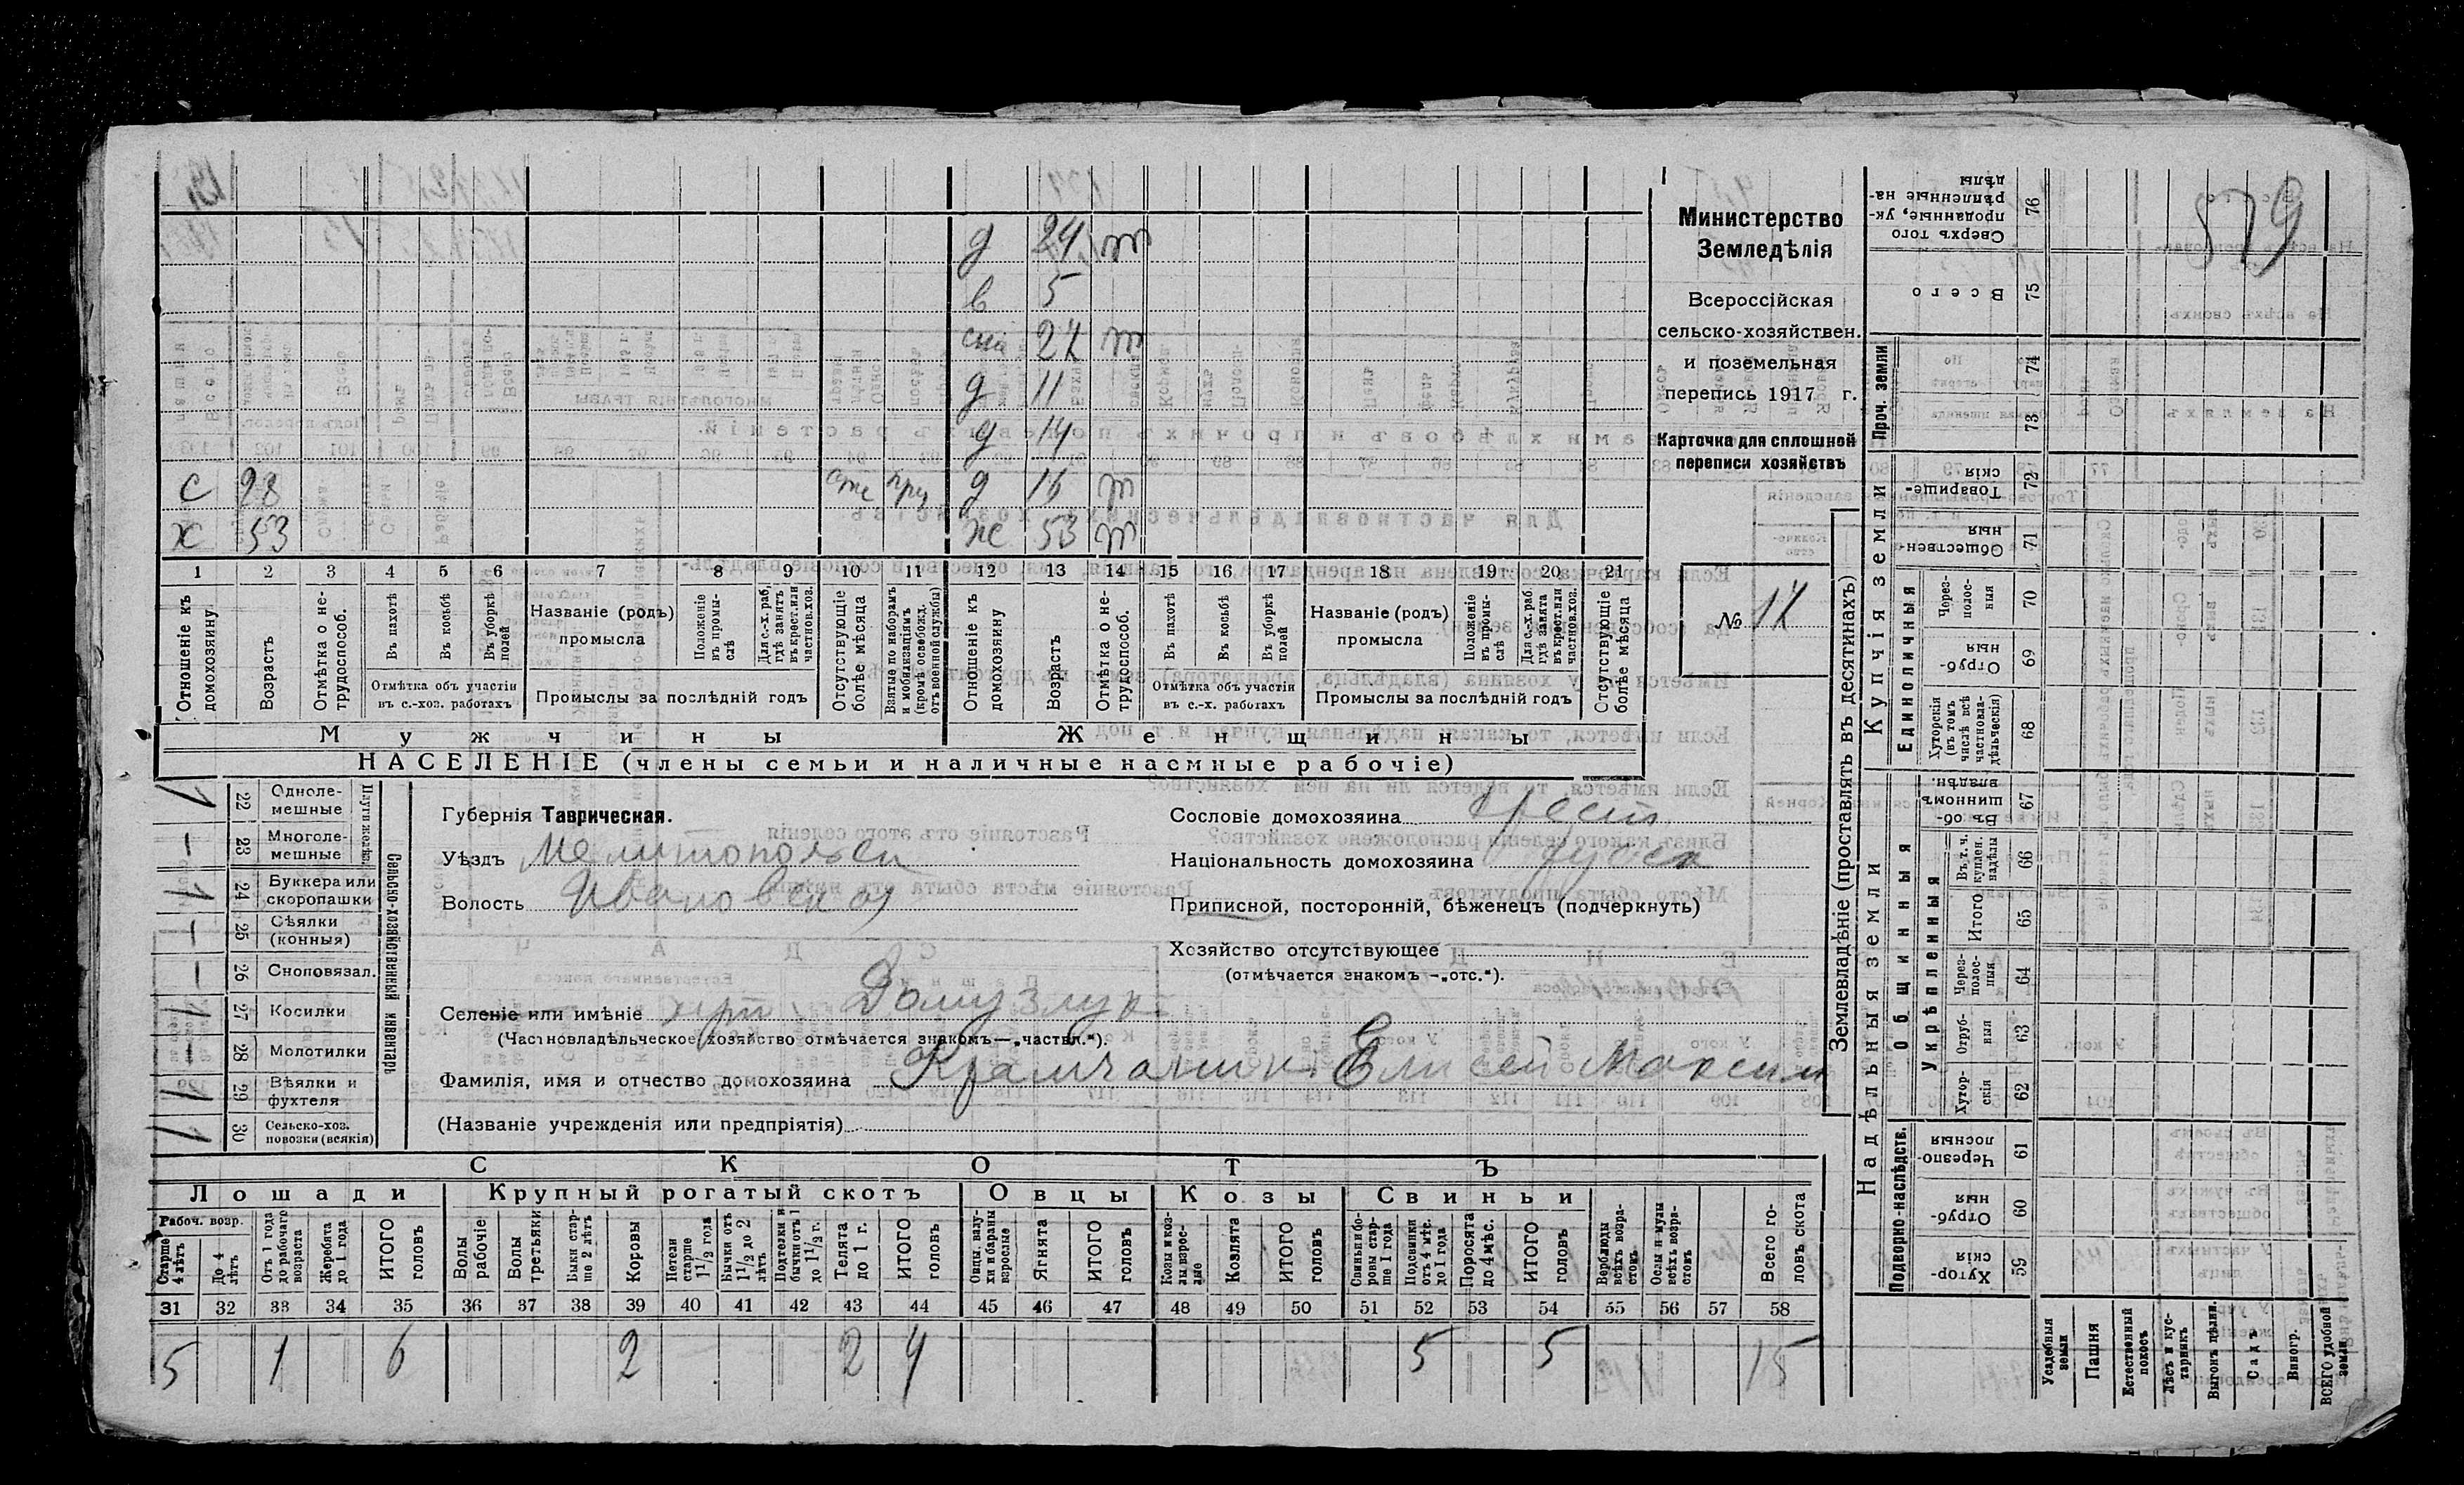 Министерство
Земледѣлія
Всероссійская
сельско-хозяйствен.
и поземельная
перепись 1917 г.
Карточка для сплошной
переписи хозяйствъ
№ 14
579
д 24 т
в 5
сна 24 т
д 11
д 14
с 28 отс при д 16 т
х 53 же 53 т
1 2 3 4 5 6 7 8 9 10 11 12 13 14 15 16 17 18 19 20 21
Отношеніе къ домохозяину.
Возрастъ
Отмѣтка о нетрудоспособ.
Въ пахотѣ
Въ косьбѣ
Въ уборкѣ полей
Отмѣтка объ участіи въ с.-хоз. работахъ
Названіе (родъ) промысла
Положеніе въ промыслѣ
Для с.-х. раб. гдѣ занятъ въ крест. или частнов. хоз.
Промыслы за послѣдній годъ
Отсутствующіе болѣе мѣсяца
Взятые по наборамъ и мобилизаціямъ (кромѣ освобожд. отъ военной службы)
Отношеніе къ домохозяину
Возрастъ
Отмѣтка о нетрудоспособ.
Въ пахотѣ
Въ косьбѣ
Въ уборкѣ полей
Отмѣтка объ участіи въ с.-х. работахъ
Названіе (родъ) промысла
Положеніе въ промыслѣ
Для с.-х. раб. гдѣ занята въ крест. или частнов. хоз.
Промыслы за послѣдній годъ
Отсутствующіе болѣе мѣсяца
Мужчины Женщины
НАСЕЛЕНІЕ (члены семьи и наличные наемные рабочіе)
Сельско-хозяйственный инвентарь
Плуги желѣз.
1 22 Однолемешные
— 23 Многолемешные
1 24 Буккера или скоропашки
— 25 Сѣялки (конныя)
— 26 Сноповязал.
1 27 Косилки
— 28 Молотилки
1 29 Вѣялки и фухтеля
1 30 Сельско-хоз. повозки (всякія)
Губернія Таврическая.
Уѣздъ Мелитопольскі
Волость Ивановская
Селеніе или имѣніе хут. Домузлук
(Частновладѣльческое хозяйство отмѣчается знакомъ—„частвл.“).
Фамилія, имя и отчество домохозяина Елисей Максим
(Названіе учрежденія или предпріятія)
Сословіе домохозяина крест
Національность домохозяина руск
Приписной, посторонній, бѣженецъ (подчеркнуть)
Хозяйство отсутствующее
(отмѣчается знакомъ —„отс.“).
СКОТЪ
Лошади Крупный рогатый скотъ Овцы Козы Свиньи
Рабоч. возр.
Старше 4 лѣтъ
До 4 лѣтъ
Отъ 1 года до рабочаго возраста
Жеребята до 1 года
ИТОГО головъ
Волы рабочіе
Волы третьяки
Быки старше 2 лѣтъ
Коровы
Нетели старше 1 1/2 года
Бычки отъ 1 1/2 до 2 лѣтъ
Подтелки и бычки отъ 1 до 1 1/2 г.
Телята до 1 г.
ИТОГО головъ
Овцы, валухи и бараны взрослые
Ягнята
ИТОГО головъ
Козы и козлы взрослые
Козлята
ИТОГО головъ
Свиньи боровы старше 1 года
Подсвинки отъ 4 мѣс. до 1 года
Поросята до 4 мѣс.
ИТОГО головъ
Верблюды всѣхъ возрастовъ
Ослы и мулы всѣхъ возрастовъ
Всего головъ скота
31 32 33 34 35 36 37 38 39 40 41 42 43 44 45 46 47 48 49 50 51 52 53 54 55 56 57 58
5 1 6 2 2 4 5 5 15
Землевладѣніе (проставлять въ десятинахъ)
Купчія земли
Надѣльныя земли
Проч. земли
Единоличныя
Общинныя
Укрѣпленныя
Подворно-наслѣдств.
Сверхъ того проданные, укрѣпленные надѣлы 76
Всего 75
74
73
Товарищескія 72
Общественныя 71
Черезполосныя 70
Отрубныя 69
Хуторскія (въ томъ числѣ всѣ частновладѣльческія) 68
Въ общинномъ владѣн. 67
Въ т. ч. куплен. надѣлы 66
Итого 65
Черезполосныя 64
Отрубныя 63
Хуторскія 62
Черезполосныя 61
Отрубныя 60
Хуторскія 59
Усадебныя земли
Пашня
Естественный покосъ
Лѣсъ и кустарникъ
Выгонъ цѣлин.
Садъ
Виногр.
ВСЕГО удобной земли